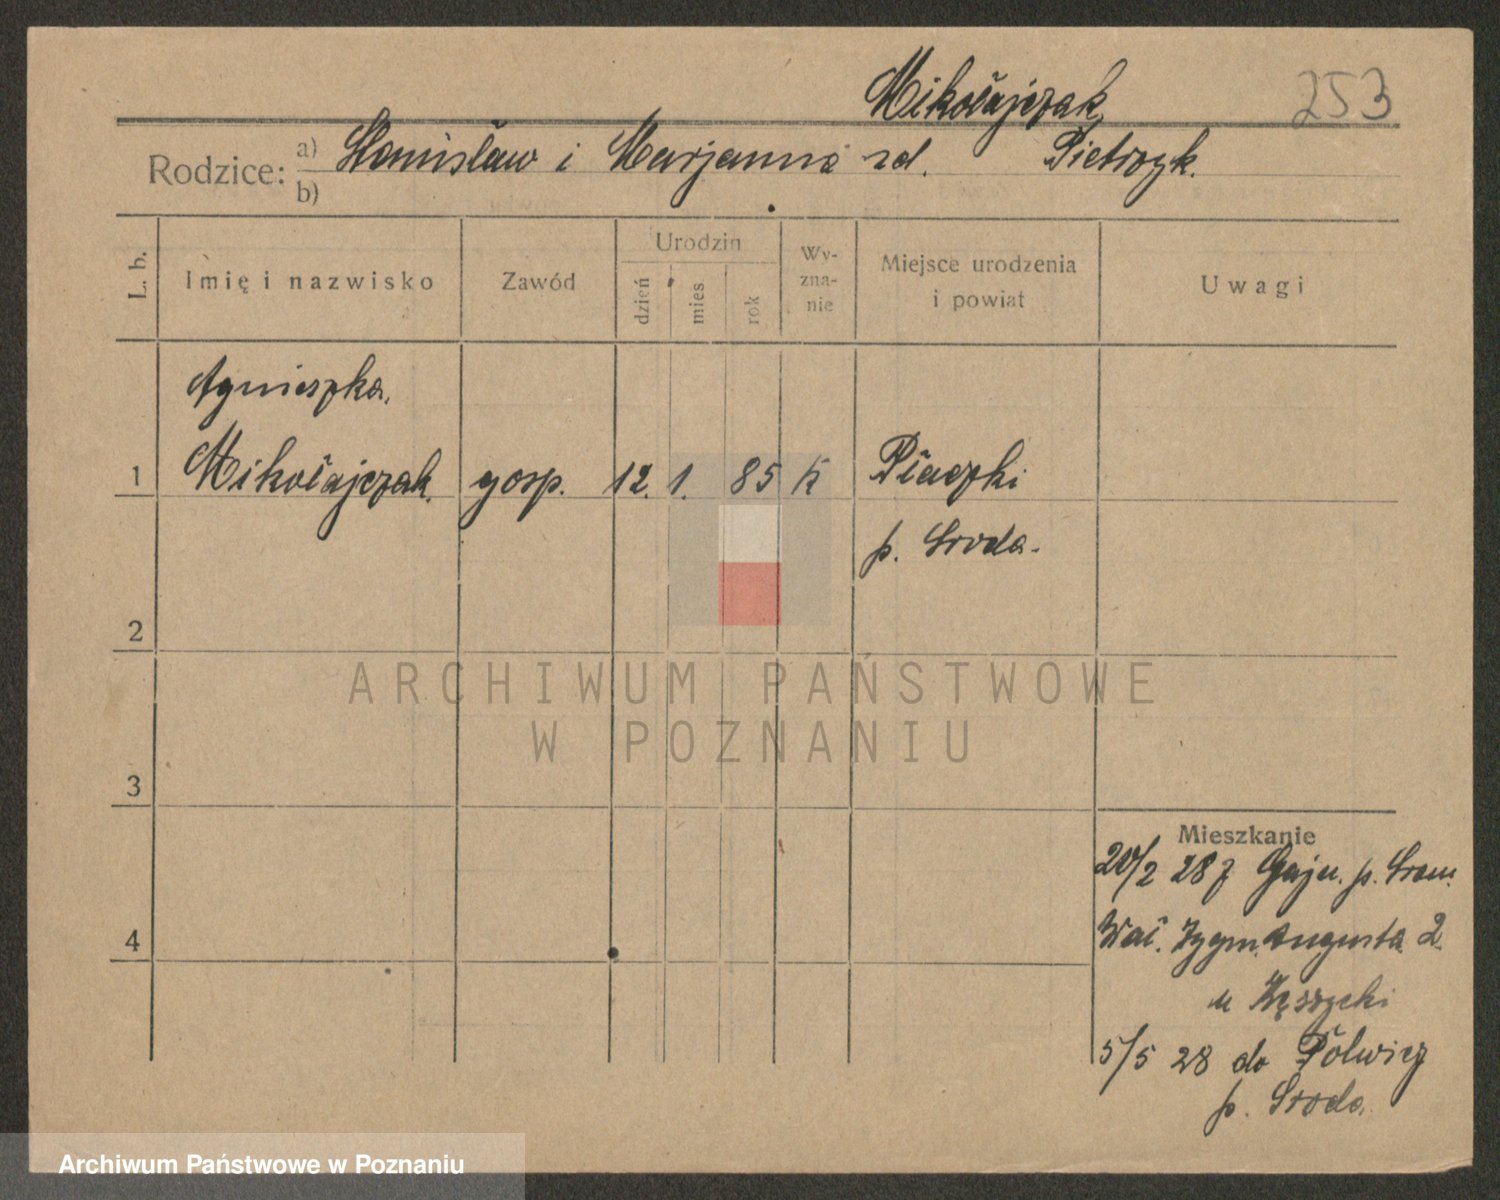 Mikołajczak 253
Rodzice: a) Stanisław i Marjanna zd. Pietrzyk.
b)
L. b. Imię i nazwisko Zawód Urodzin dzień mies rok Wy-zna-nie Miejsce urodzenia i powiat Uwagi
Agnieszka.
1 Mikołajczak. gosp. 12. 1. 85 K Płaczki
p. Sroda.
2
ARCHIWUM PAŃSTWOWE
W POZNANIU
3
Mieszkanie
20/2 28 z Gaju. p. Srem.
4 Wał. Zygm. Augusta 2.
u
5/5 28 do Polwicz
p. Sroda.
Archiwum Państwowe w Poznaniu